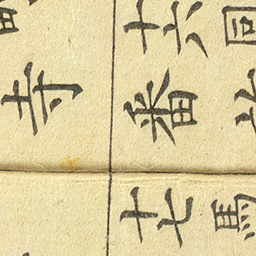 同
馬
十六番
十七
寺